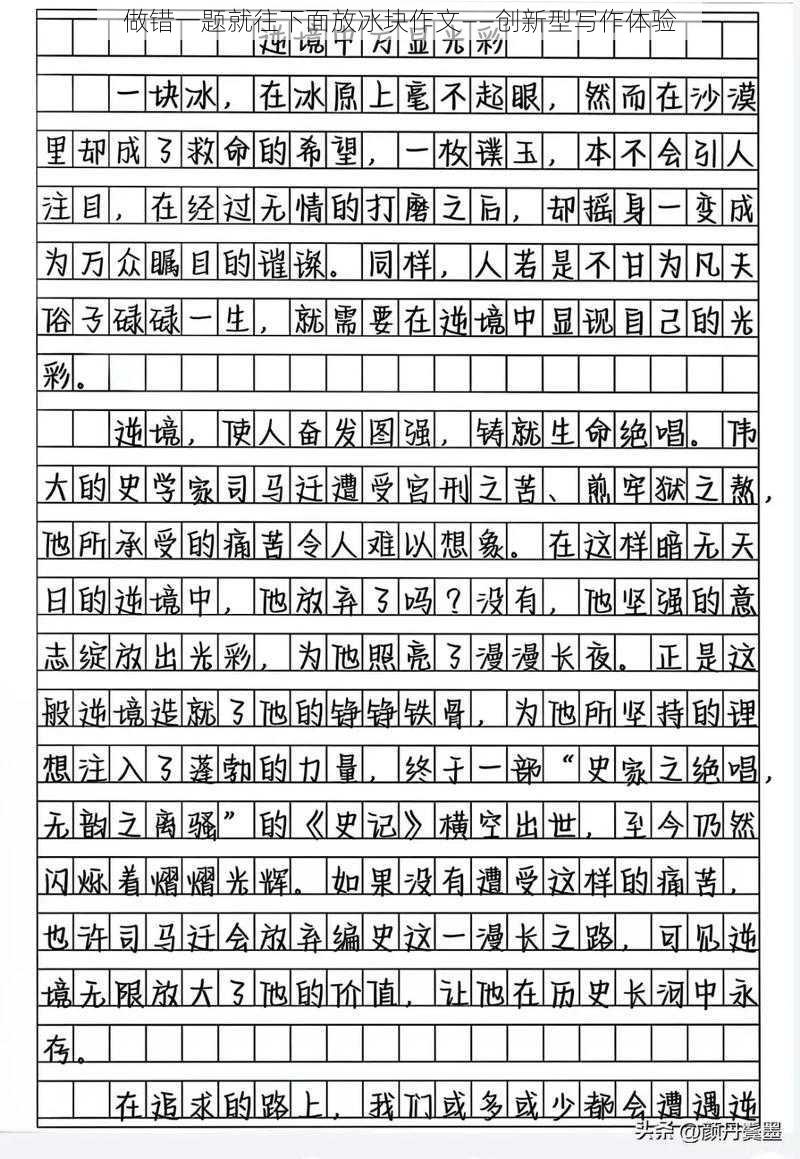 做错一题就往下面放冰块作文——创新型写作体验
逆境中方显光彩
一块冰，在冰原上毫不起眼，然而在沙漠
里却成了救命的希望，一枚璞玉，本不会引人
注目，在经过无情的打磨之后，却摇身一变成
为万众瞩目的璀璨。同样，人若是不甘为凡夫
俗子碌碌一生，就需要在逆境中显现自己的光
彩。
逆境，使人奋发图强，铸就生命绝唱。伟
大的史学家司马迁遭受宫刑之苦、煎牢狱之熬，
他所承受的痛苦令人难以想象。在这样暗无天
日的逆境中，他放弃了吗？没有，他坚强的意
志绽放出光彩，为他照亮了漫漫长夜。正是这
般逆境造就了他的铮铮铁骨，为他所坚持的理
想注入了蓬勃的力量，终于一部“史家之绝唱，
无韵之离骚”的《史记》横空出世，至今仍然
闪烁着熠熠光辉。如果没有遭受这样的痛苦，
也许司马迁会放弃编史这一漫长之路，可见逆
境无限放大了他的价值，让他在历史长河中永
存。
在追求的路上，我们或多或少都会遭遇逆
头条@颜丹冀墨